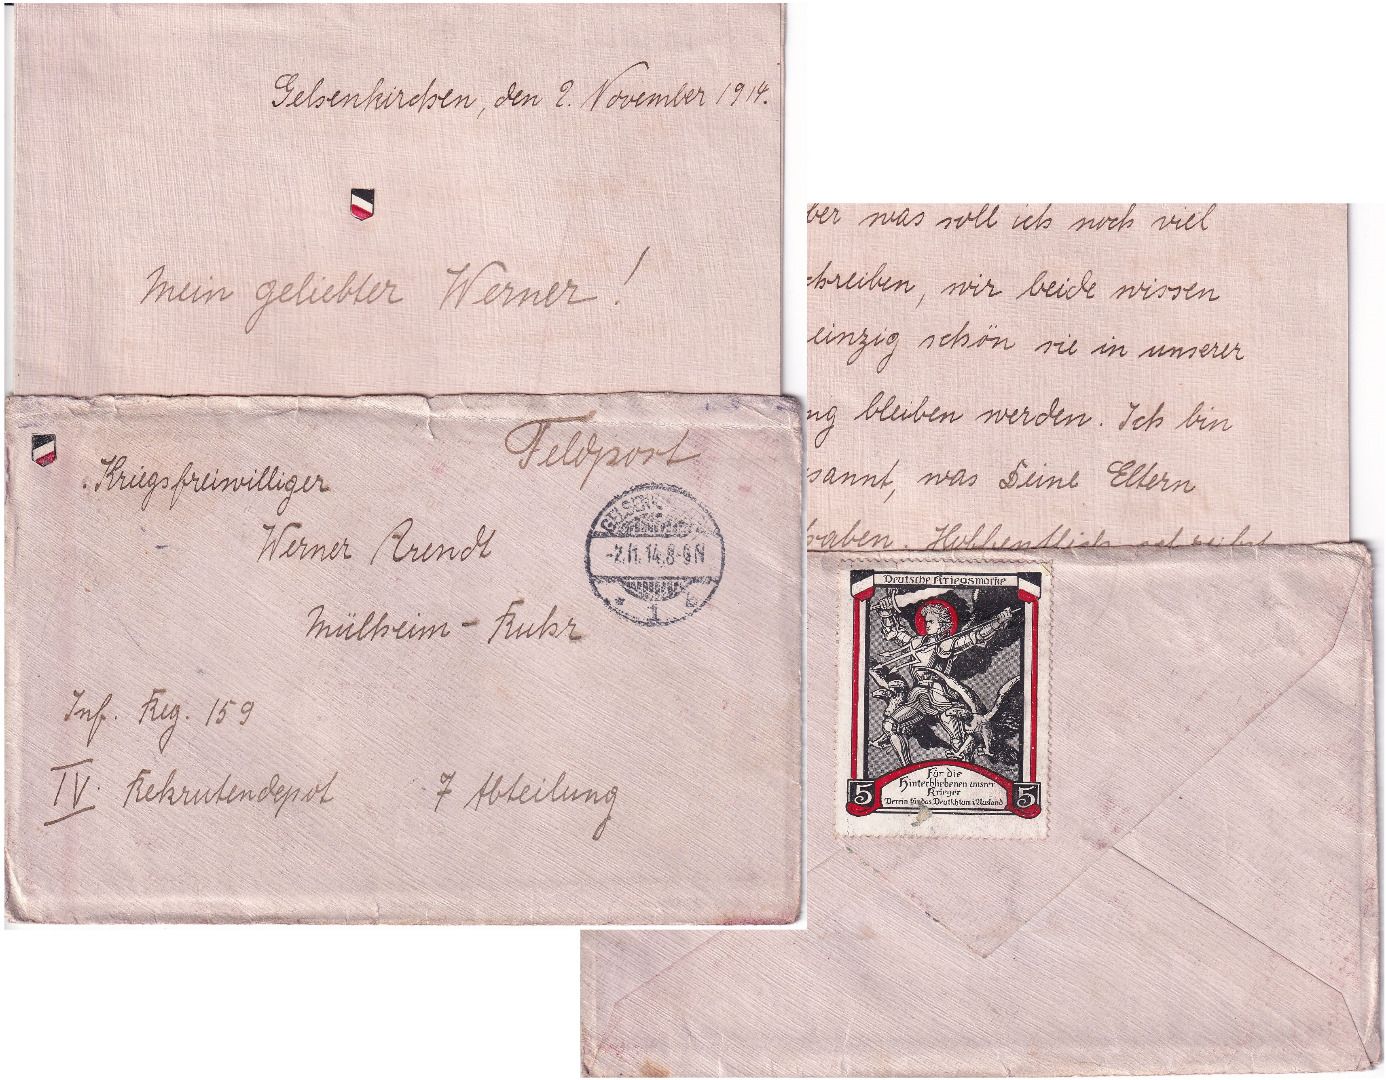 Gelsenkirchen, den 2. November 1914.
Mein geliebter Werner!
Feldpost
Kriegsfreiwilliger
Werner Arendt
Mülheim-Ruhr
Inf. Reg. 159
IV. Rekrutendepot 7 Abteilung
GELSENK
-2.11.14.8-9N
* 1
ber was soll ich noch viel
chreiben, wir beide wissen
einzig schön sie in unserer
ng bleiben werden. Ich bin
sannt, was Deine Eltern
haben. Hoffentlich schreibst
Deutsche Kriegsmarke
Für die
Hinterbliebenen unsrer
Krieger
Verein für das Deutschtum i. Ausland
5 5